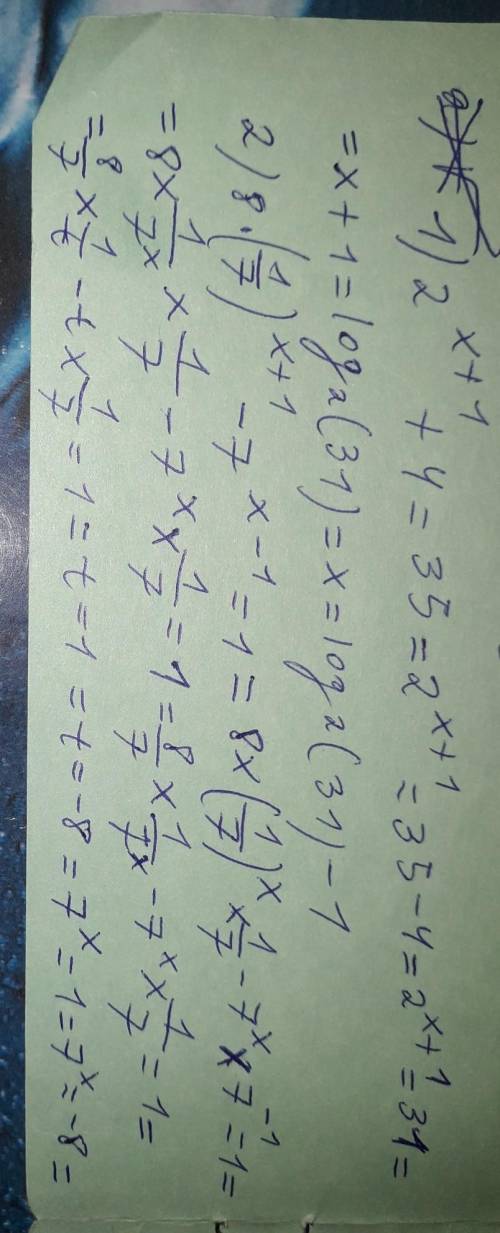 1) 2^(x+1) + 4 = 35 = 2^(x+1) = 35 - 4 = 2^(x+1) = 31 =
= x + 1 = log₂(31) = x = log₂(31) - 1
2) 8 · (1/7)^(x+1) - 7^(x-1) = 1 = 8 × (1/7)^x × 1/7 - 7^x × 7^(-1) = 1 =
= 8 × 1/7^x × 1/7 - 7^x × 1/7 = 1 = 8/7 × 1/7^x - 7^x × 1/7 = 1 =
= 8/7 × 1/t - t × 1/7 = 1 = t = 1 = t = -8 = 7^x = 1 = 7^x = -8 =